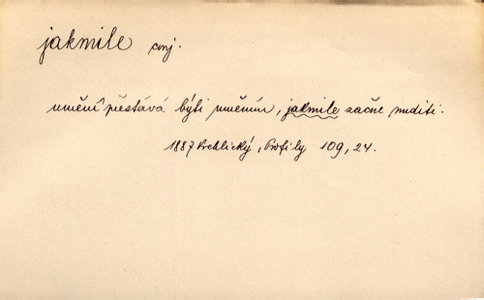 jakmile conj.
umění přestává býti uměním, jakmile začne nuditi.
1887 Vrchlický, Profily 109, 24.